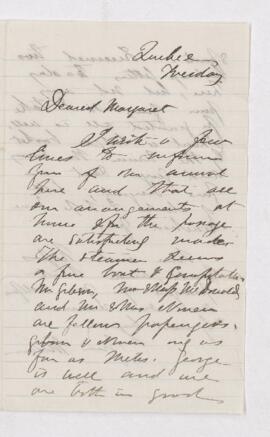 Quebec
Tuesday
Dearest Margaret
I write a few
lines to inform
you of our arrival
here and that all
our arrangements at
home & for the passage
are satisfactory made.
The steamer seems
a fine boat &
Mr Gibson, Mr & Miss McDonald
and Mr & Mrs
are fellow passengers.
Gibson &
far as George
is well and we
are both in good